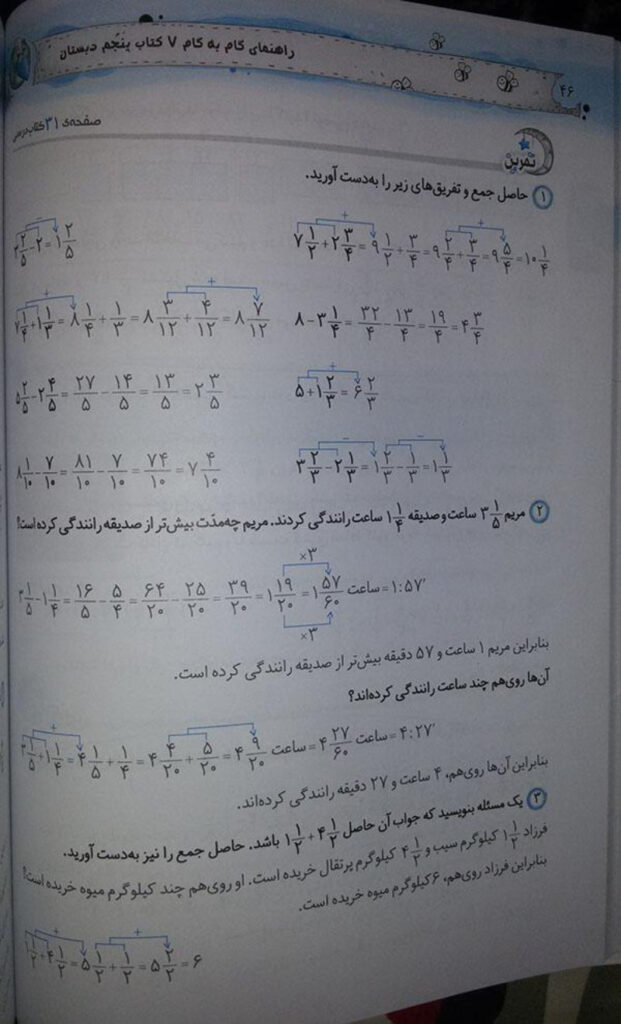 راهنمای گام به گام ۷ کتاب پنجم دبستان
۴۶
صفحه‌ی ۳۱ کتاب درسی
تمرین
۱ حاصل جمع و تفریق‌های زیر را به‌دست آورید.
۷ ۱/۲ + ۲ ۳/۴ = ۹ ۱/۲ + ۳/۴ = ۹ ۲/۴ + ۳/۴ = ۹ ۵/۴ = ۱۰ ۱/۴
۲/۵ - ۲ = ۱ ۲/۵
۸ - ۳ ۱/۴ = ۳۲/۴ - ۱۳/۴ = ۱۹/۴ = ۴ ۳/۴
۷ ۱/۴ + ۱ ۱/۳ = ۸ ۱/۴ + ۱/۳ = ۸ ۳/۱۲ + ۴/۱۲ = ۸ ۷/۱۲
۵ + ۱ ۲/۳ = ۶ ۲/۳
۵ ۲/۵ - ۲ ۴/۵ = ۲۷/۵ - ۱۴/۵ = ۱۳/۵ = ۲ ۳/۵
۳ ۲/۳ - ۲ ۱/۳ = ۱ ۲/۳ - ۱/۳ = ۱ ۱/۳
۸ ۱/۱۰ - ۷/۱۰ = ۸۱/۱۰ - ۷/۱۰ = ۷۴/۱۰ = ۷ ۴/۱۰
۲ مریم ۳ ۱/۵ ساعت و صدیقه ۱ ۱/۴ ساعت رانندگی کردند. مریم چه‌مدّت بیش‌تر از صدیقه رانندگی کرده است؟
×۳
۳ ۱/۵ - ۱ ۱/۴ = ۱۶/۵ - ۵/۴ = ۶۴/۲۰ - ۲۵/۲۰ = ۳۹/۲۰ = ۱ ۱۹/۲۰ = ۱ ۵۷/۶۰ ساعت = ۱:۵۷′
×۳
بنابراین مریم ۱ ساعت و ۵۷ دقیقه بیش‌تر از صدیقه رانندگی کرده است.
آن‌ها روی‌هم چند ساعت رانندگی کرده‌اند؟
۳ ۱/۵ + ۱ ۱/۴ = ۴ ۱/۵ + ۱/۴ = ۴ ۴/۲۰ + ۵/۲۰ = ۴ ۹/۲۰ ساعت = ۴ ۲۷/۶۰ ساعت = ۴:۲۷′
بنابراین آن‌ها روی‌هم، ۴ ساعت و ۲۷ دقیقه رانندگی کرده‌اند.
۳ یک مسئله بنویسید که جواب آن حاصل ۴ ۱/۲ + ۱ ۱/۲ باشد. حاصل جمع را نیز به‌دست آورید.
فرزاد ۱ ۱/۲ کیلوگرم سیب و ۴ ۱/۲ کیلوگرم پرتقال خریده است. او روی‌هم چند کیلوگرم میوه خریده است؟
بنابراین فرزاد روی‌هم، ۶ کیلوگرم میوه خریده است.
۱/۲ + ۴ ۱/۲ = ۵ ۱/۲ + ۱/۲ = ۵ ۲/۲ = ۶